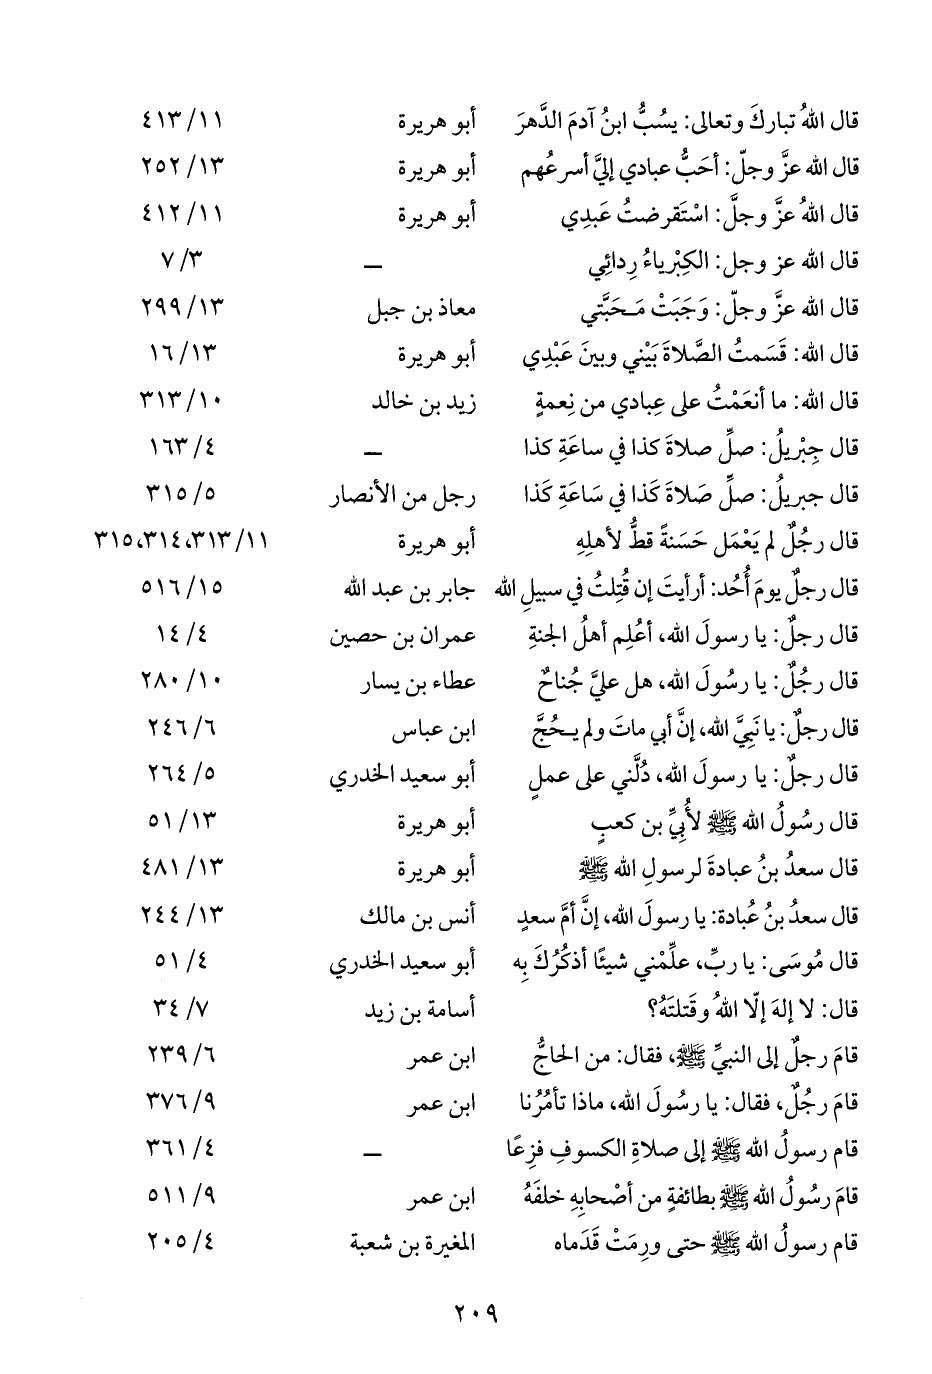 قال اللهُ تباركَ وتعالى: يسُبُّ ابنُ آدمَ الدَّهرَ أبو هريرة ٤١٣/١١
قال الله عزَّ وجلّ: أحَبُّ عبادي إليَّ أسرعُهم أبو هريرة ٢٥٢/١٣
قال اللهُ عزَّ وجلَّ: اسْتَقرضتُ عَبدِي أبو هريرة ٤١٢/١١
قال الله عز وجل: الكِبْرياءُ رِدائِي ــ ٧/٣
قال الله عزَّ وجلّ: وَجَبَتْ مَـحَبَّتي معاذ بن جبل ٢٩٩/١٣
قال الله: قَسَمتُ الصَّلاةَ بَيْني وبينَ عَبْدِي أبو هريرة ١٦/١٣
قال الله: ما أنعَمْتُ على عِبادي من نِعمةٍ زيد بن خالد ٣١٣/١٠
قال جِبْريلُ: صلِّ صلاةَ كذا في ساعَةِ كذا ــ ١٦٣/٤
قال جبريلُ: صلِّ صَلاةَ كَذا في سَاعَةِ كَذا رجل من الأنصار ٣١٥/٥
قال رجُلٌ لم يَعْمَل حَسَنةً قطُّ لأهلِهِ أبو هريرة ٣١٥،٣١٤،٣١٣/١١
قال رجلٌ يومَ أُحُد: أرأيتَ إن قُتِلتُ في سبيلِ الله جابر بن عبد الله ٥١٦/١٥
قال رجلٌ: يا رسولَ الله، أعُلِم أهلُ الجنةِ عمران بن حصين ١٤/٤
قال رجُلٌ: يا رسُولَ الله، هل عليَّ جُناحٌ عطاء بن يسار ٢٨٠/١٠
قال رجلٌ: يا نَبِيَّ الله، إنَّ أبي ماتَ ولم يـحُجَّ ابن عباس ٢٤٦/٦
قال رجلٌ: يا رسولَ الله، دُلَّني على عملٍ أبو سعيد الخدري ٢٦٤/٥
قال رسُولُ الله ﷺ لأُبيِّ بن كعبٍ أبو هريرة ٥١/١٣
قال سعدُ بنُ عبادةَ لرسولِ الله ﷺ أبو هريرة ٤٨١/١٣
قال سعدُ بنُ عُبادة: يا رسولَ الله، إنَّ أمَّ سعدٍ أنس بن مالك ٢٤٤/١٣
قال مُوسَى: يا ربِّ، علِّمْني شيئًا أذكُرُكَ بِه أبو سعيد الخدري ٥١/٤
قال: لا إلهَ إلّا اللهُ وقَتلتَهُ؟ أسامة بن زيد ٣٤/٧
قامَ رجلٌ إلى النبيِّ ﷺ، فقال: من الحاجُّ ابن عمر ٢٣٩/٦
قامَ رجُلٌ، فقال: يا رسُولَ الله، ماذا تأمُرُنا ابن عمر ٣٧٦/٩
قام رسولُ الله ﷺ إلى صلاةِ الكسوفِ فزِعًا ــ ٣٦١/٤
قامَ رسُولُ الله ﷺ بطائفةٍ من أصْحابِهِ خلفَهُ ابن عمر ٥١١/٩
قام رسولُ الله ﷺ حتى ورِمَتْ قَدَماه المغيرة بن شعبة ٢٠٥/٤
٢٠٩